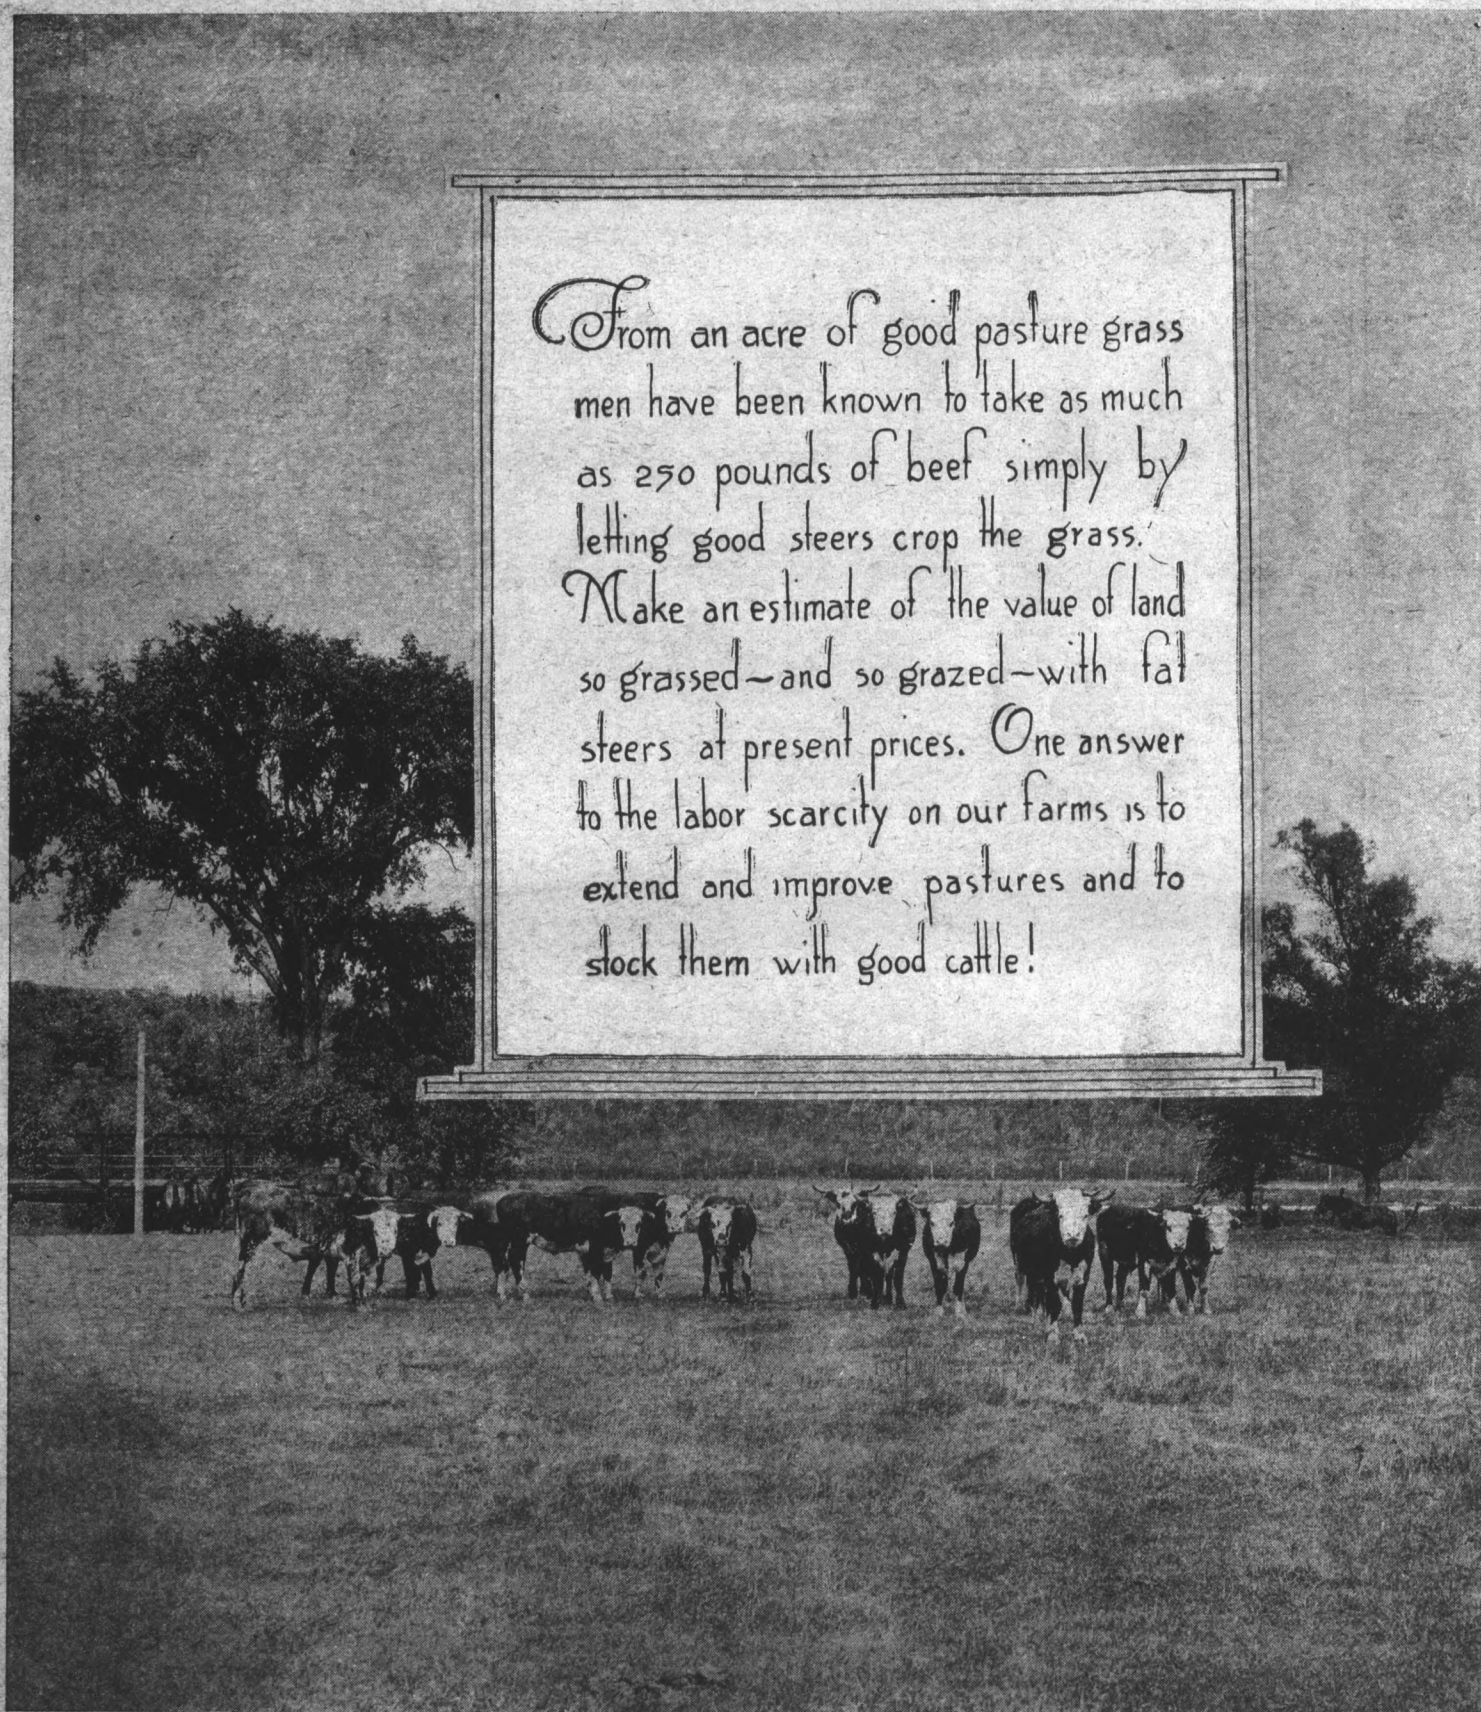 From an acre of good pasture grass
men have been known to take as much
as 250 pounds of beef simply by
letting good steers crop the grass.
Make an estimate of the value of land
so grassed—and so grazed—with fat
steers at present prices. One answer
to the labor scarcity on our farms is to
extend and improve pastures and to
stock them with good cattle!